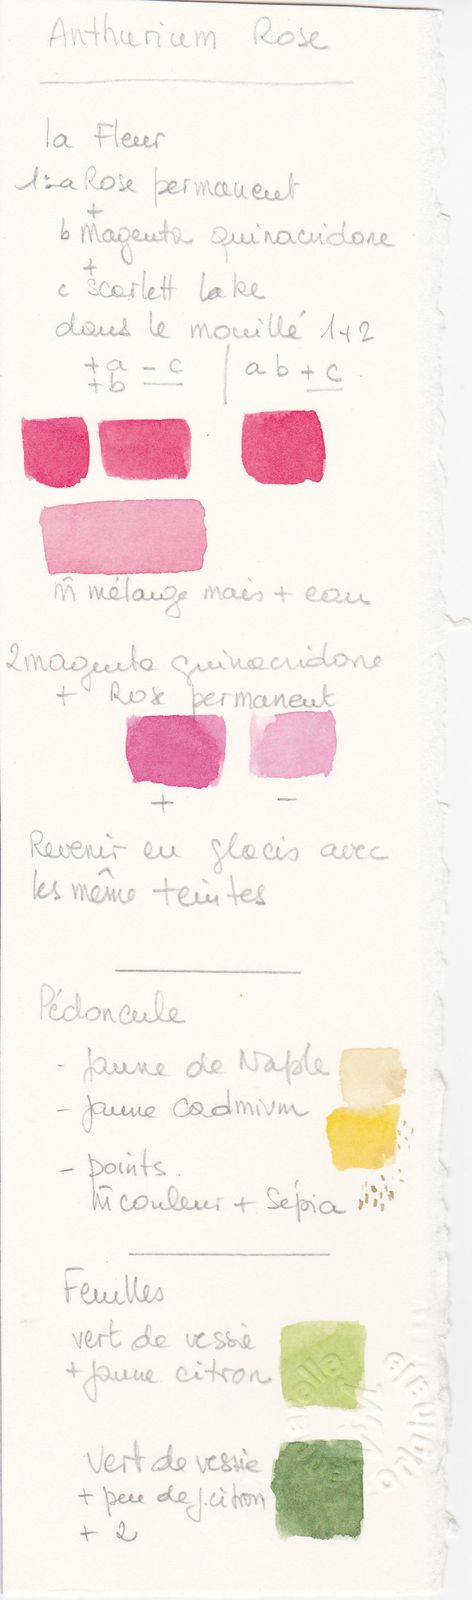 Anthurium Rose
la Fleur
1=a Rose permanent
+
b magenta quinacridone
+
c scarlett lake
dans le mouillé 1+2
+a - c | a b + c
+b
m̄ mélange mais + eau
2 magenta quinacridone
+ Rose permanent
+ -
Revenir en glacis avec
les même teintes
Pédoncule
- jaune de Naple
- jaune cadmium
- points.
m̄ couleur + Sépia
Feuilles
vert de vessie
+ jaune citron
vert de vessie
+ peu de j. citron
+ 2